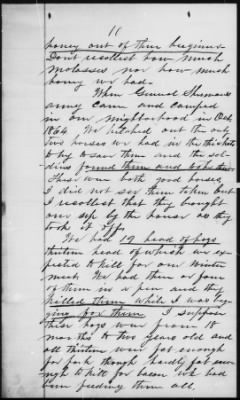 11
honey out of their beegums
Dont recollect how much
molasses nor how much
honey we had.
When General Shermans
army came and camped
in our neighborhood in Oct
1864 We hitched out the only
two horses we had in the thickets
to try to save them and the sol-
diers found them and took them
These were both good horses
I did not see them taken but
I recollect that they brought
one up by the house as they
took it off.
We had 19 head of hogs
thirteen head of which we ex-
pected to kill for our winter
meat We had three or four
of them in a pen and they
killed them while I was beg-
ging for them I suppose
these hogs were from 18
months to two years old and
all thirteen were fat enough
for pork though hardly fat enou-
gh to kill for bacon we had
been feeding them all.